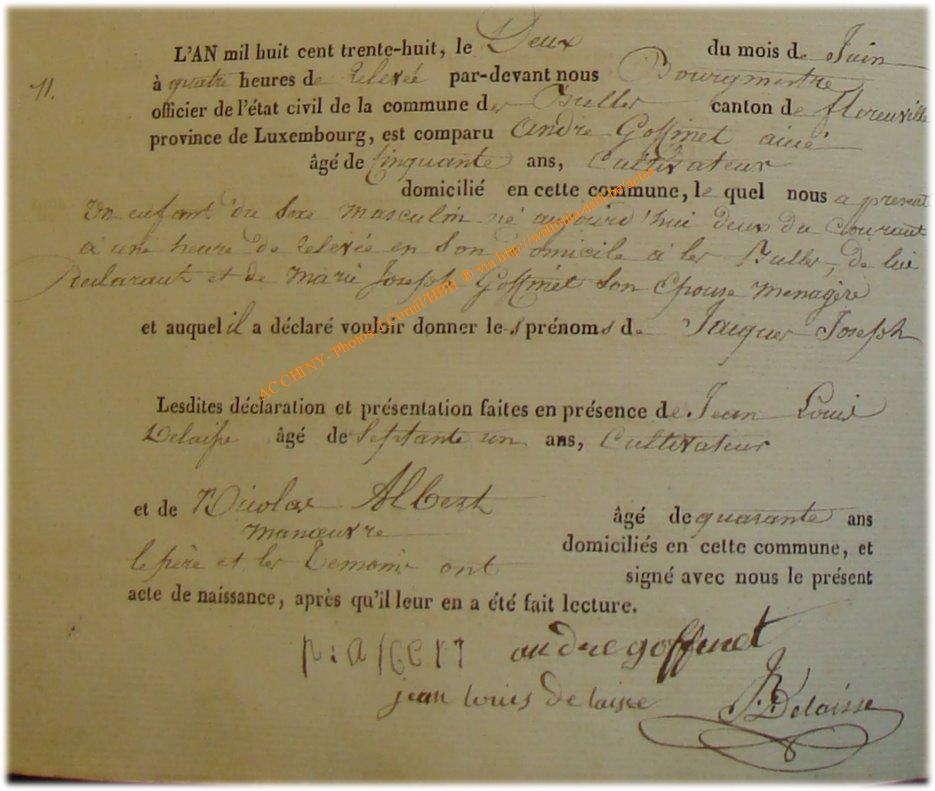 11.
L'AN mil huit cent trente-huit, le Deux du mois de Juin
à quatre heures de relevée par-devant nous Bourgmestre
officier de l'état civil de la commune des Bulles canton de florenville
province de Luxembourg, est comparu André Goffinet ainé
âgé de Cinquante ans, Cultivateur
domicilié en cette commune, le quel nous a présenté
un enfant du Sexe masculin né aujourd'hui deux du Courant
à une heure de relevée en son domicile à les Bulles, de lui
Declarant et de Marie Joseph Goffinet Son Epouse menagère
et auquel il a déclaré vouloir donner les prénoms de Jacques Joseph
Lesdites déclaration et présentation faites en présence de Jean Louis
Delaisse âgé de Septante un ans, Cultivateur
et de Nicolas Albert âgé de quarante ans
manœuvre domiciliés en cette commune, et
le père et les Temoins ont signé avec nous le présent
acte de naissance, après qu'il leur en a été fait lecture.
andre goffinet
jean louis delaisse Delaisse
AC CHINY - Photos A.Conil/HBH ® via http://wallonia-